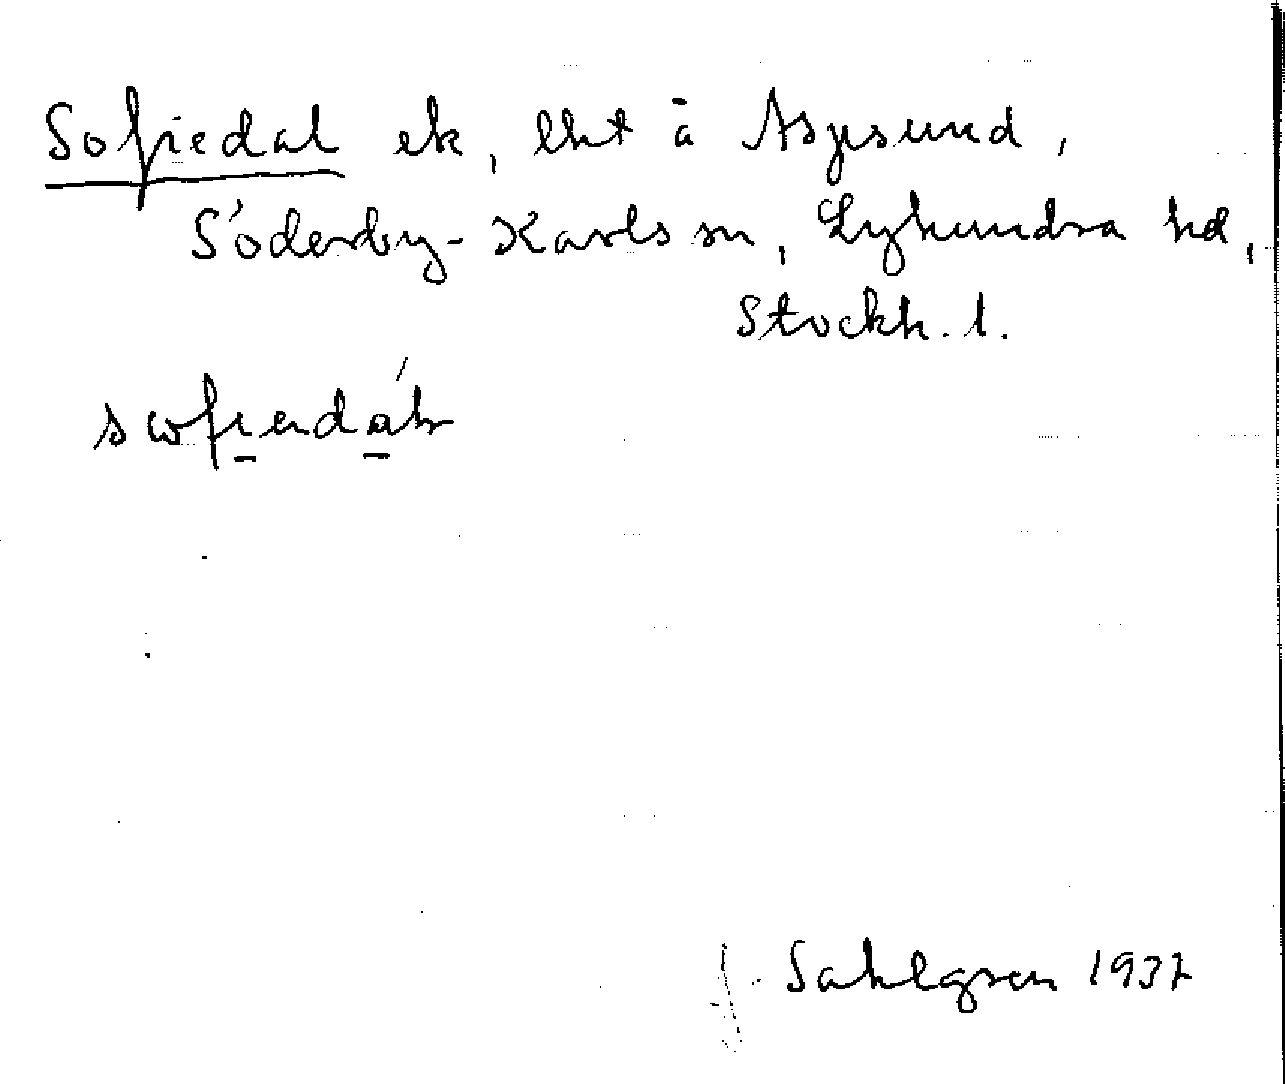 Sofiedal ek, lht å Aspsund,
Söderby-Karls sn, Lyhundra hd,
Stockh. l.
J. Sahlgren 1937